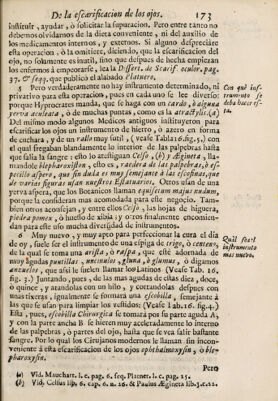 De la escarificacion de los ojos. 173
instituir, ayudar, ò solicitar la supuracion. Pero entre tanto no
debemos olvidarnos de la dieta conveniente, ni del auxilio de
los medicamentos internos, y externos. Si alguno despreciàre
esta operacion, ò la omitiere, diciendo, que la escarificacion del
ojo, no solamente es inutil, sino que despues de hecha empiezan
los enfermos à empeorarse, lea la Differt. de Scarif. ocular. pag.
37. & seqq. que publicò el alabado Platnero.
5 Pero verdaderamente no hay instrumento determinado, ni
privativo para esta operacion, pues en cada uno se lee diverso
porque Hypocrates manda, que se haga con un cardo, ò alguna
yerva aculeata, ò de muchas puntas, como es la atractylis. (a)
Del mismo modo algunos Medicos antiguos instituyeron para
escarificar los ojos un instrumento de hierro, ò azero en forma
de cuchara, y de un rallo muy sutil, ( vease Tab. 16. fig. 5. ) con
el qual fregaban blandamente lo interior de las palpebras, hasta
que salia la sangre: esto lo atestiguan Celso, (b) y Ægineta, lla-
mandole blepharoxiston, esto es, raedera de las palpebras, ò es-
pecillo aspero, que sin duda es muy semejante à las escofinas, que
de varias figuras usan nuestros Estatuarios. Otros usan de una
yerva aspera, que los Botanicos llaman equisetum majus nudum,
porque la consideran mas acomodada para este negocio. Tam-
bien otros aconsejan, y entre ellos Celso, las hojas de higuera,
piedra pomez, ò huesso de xibia; y otros finalmente encomien-
dan para este uso mucha diversidad de instrumentos.
6 Muy nuevo, y muy apto para perfeccionar la cura el dia
de oy, suele ser el instrumento de una espiga de trigo, ò centeno,
de la qual se toma una arista, ò raspa, que esté adornada de
muy agudas puntillas, uncinulos, gluma, ò glumus, ò digamos
anzuelos, que assi le suelen llamar los Latinos (Vease Tab. 16.
fig. 3.) Juntando, pues, de las mas agudas de estas diez, doce,
ò quince, y atandolas con un hilo, y cortandolas despues con
unas tixeras, igualmente se formara una escobilla, semejante à
las que se usan para limpiar los vestidos (Vease Tab. 16. fig. 4.)
Esta, pues, escobilla Chirurgica se tomara por su parte aguda A,
y con la parte ancha B se hieren muy aceleradamente lo interno
de las palpebras, ò partes del ojo, hasta que se vea salir bastante
sangre. Por lo qual los Cirujanos modernos le llaman sin incon-
veniente à esta escarificacion de los ojos ophthalmoxysin, ò ble-
pharoxysin.
Pero
(a) Vid. Mauchart. l. c. pag. 6. seq. Platner. l. c. pag. 25.
(b) Vid. Celsus lib. 6. cap. 6. n. 26. & Paulus Ægineta lib. 3. c. 22.
Con què ins-
trumento se
deba hacer es-
ta.
Quàl sea el
instrumento
mas nuevo.